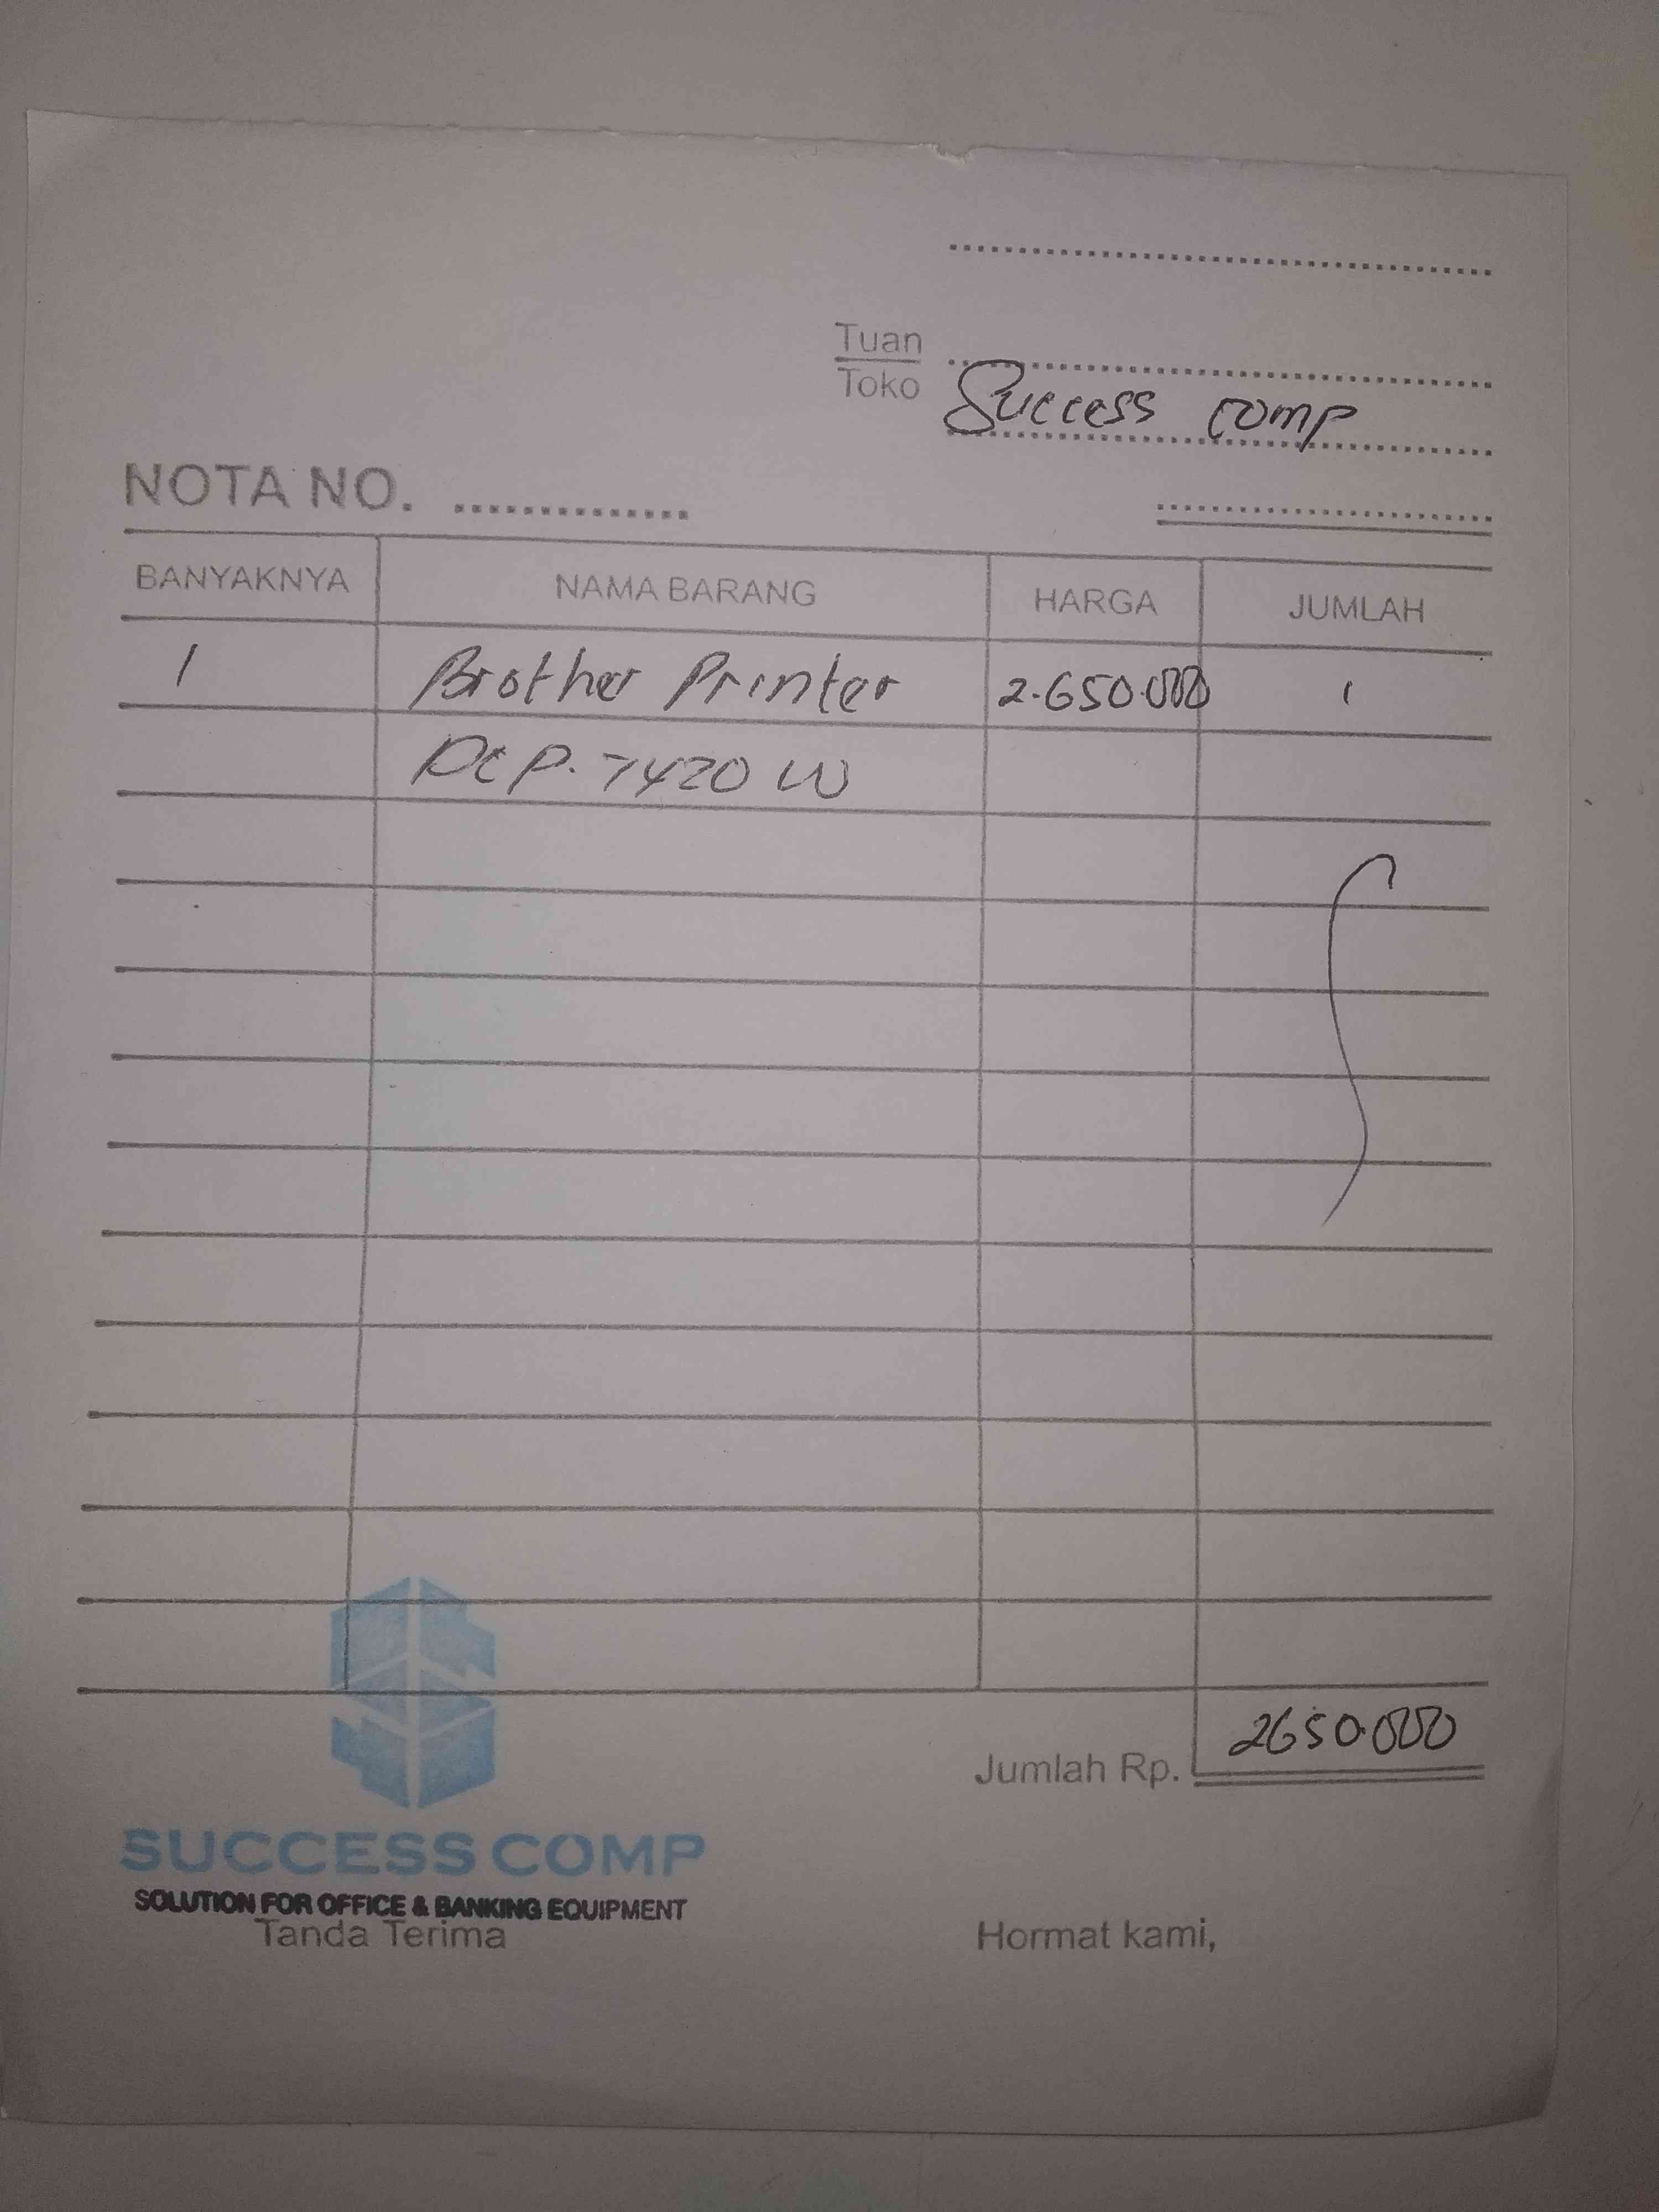 Tuan
Toko Success comp
NOTA NO.
BANYAKNYA NAMA BARANG HARGA JUMLAH
1 Brother Printer 2.650.000 1
DCP. 7420 W
Jumlah Rp. 2650.000
SUCCESS COMP
SOLUTION FOR OFFICE & BANKING EQUIPMENT
Tanda Terima Hormat kami,